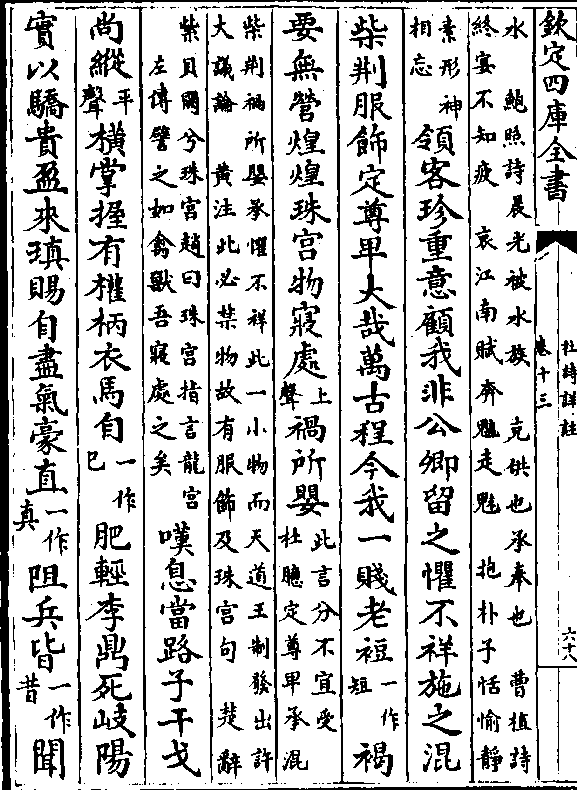 欽定四庫全書
杜詩詳註
卷十三
六十八
水　鮑照詩晨光被水族　克供也承奉也　曹植詩
終宴不知疲　哀江南賦奔魑走魅　抱朴子恬愉靜
素形神相忘　領客珍重意顧我非公卿留之懼不祥施之混
柴荆服飾定尊卑大哉萬古程今我一賤老裋一作短褐
要無營煌煌珠宮物寢處上聲禍所嬰此言分不宜受
杜臆定尊卑承混
柴荆禍所嬰承懼不祥此一小物而天道王制發出許
大議論　黄注此必禁物故有服飾及珠宮句　楚辭
紫貝闕兮珠宮趙曰珠宮指言龍宮
左傳譬之如禽獸吾寢處之矣　嘆息當路子干戈
尚縱平聲橫掌握有權柄衣馬自一作已肥輕李鼎死岐陽
實以驕貴盈來瑱賜自盡氣豪直一作真阻兵皆一作昔聞